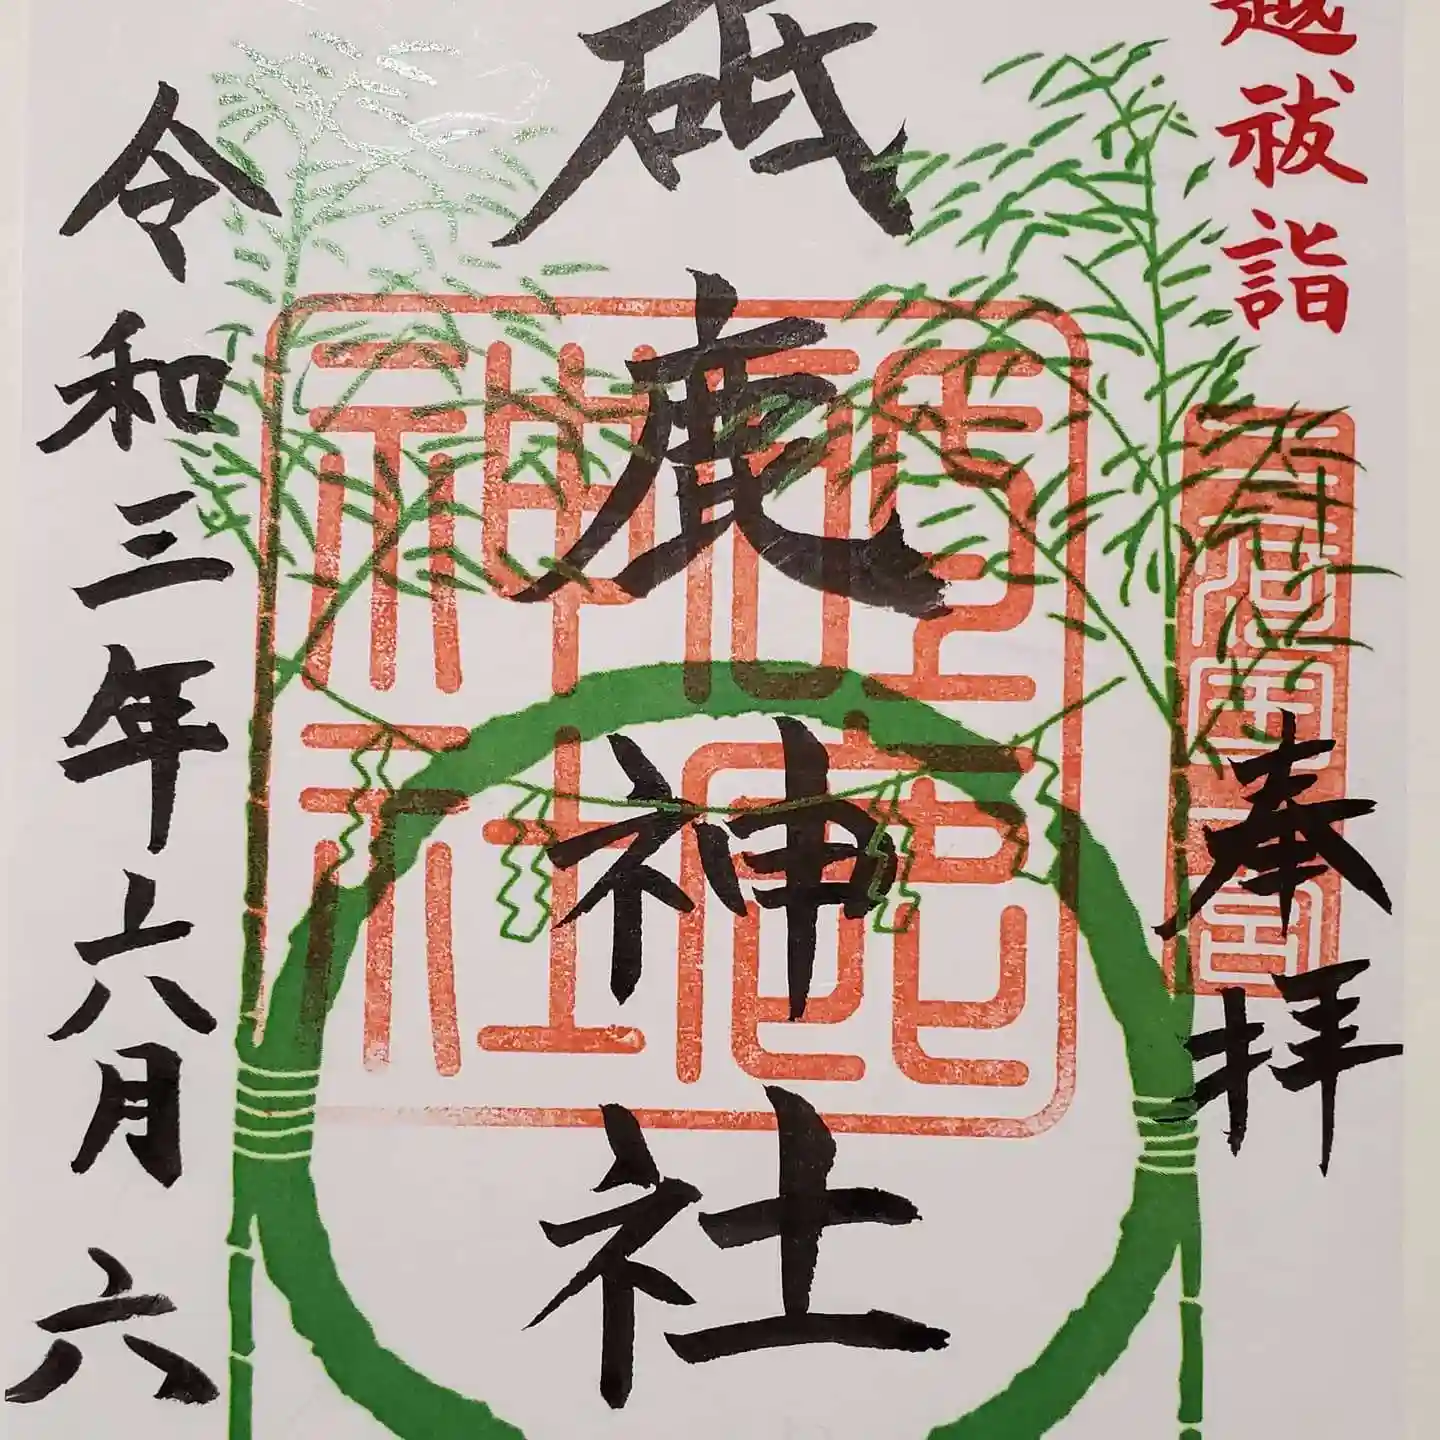 越祓詣
三河国一宮
奉拝
砥鹿神社
令和三年六月六